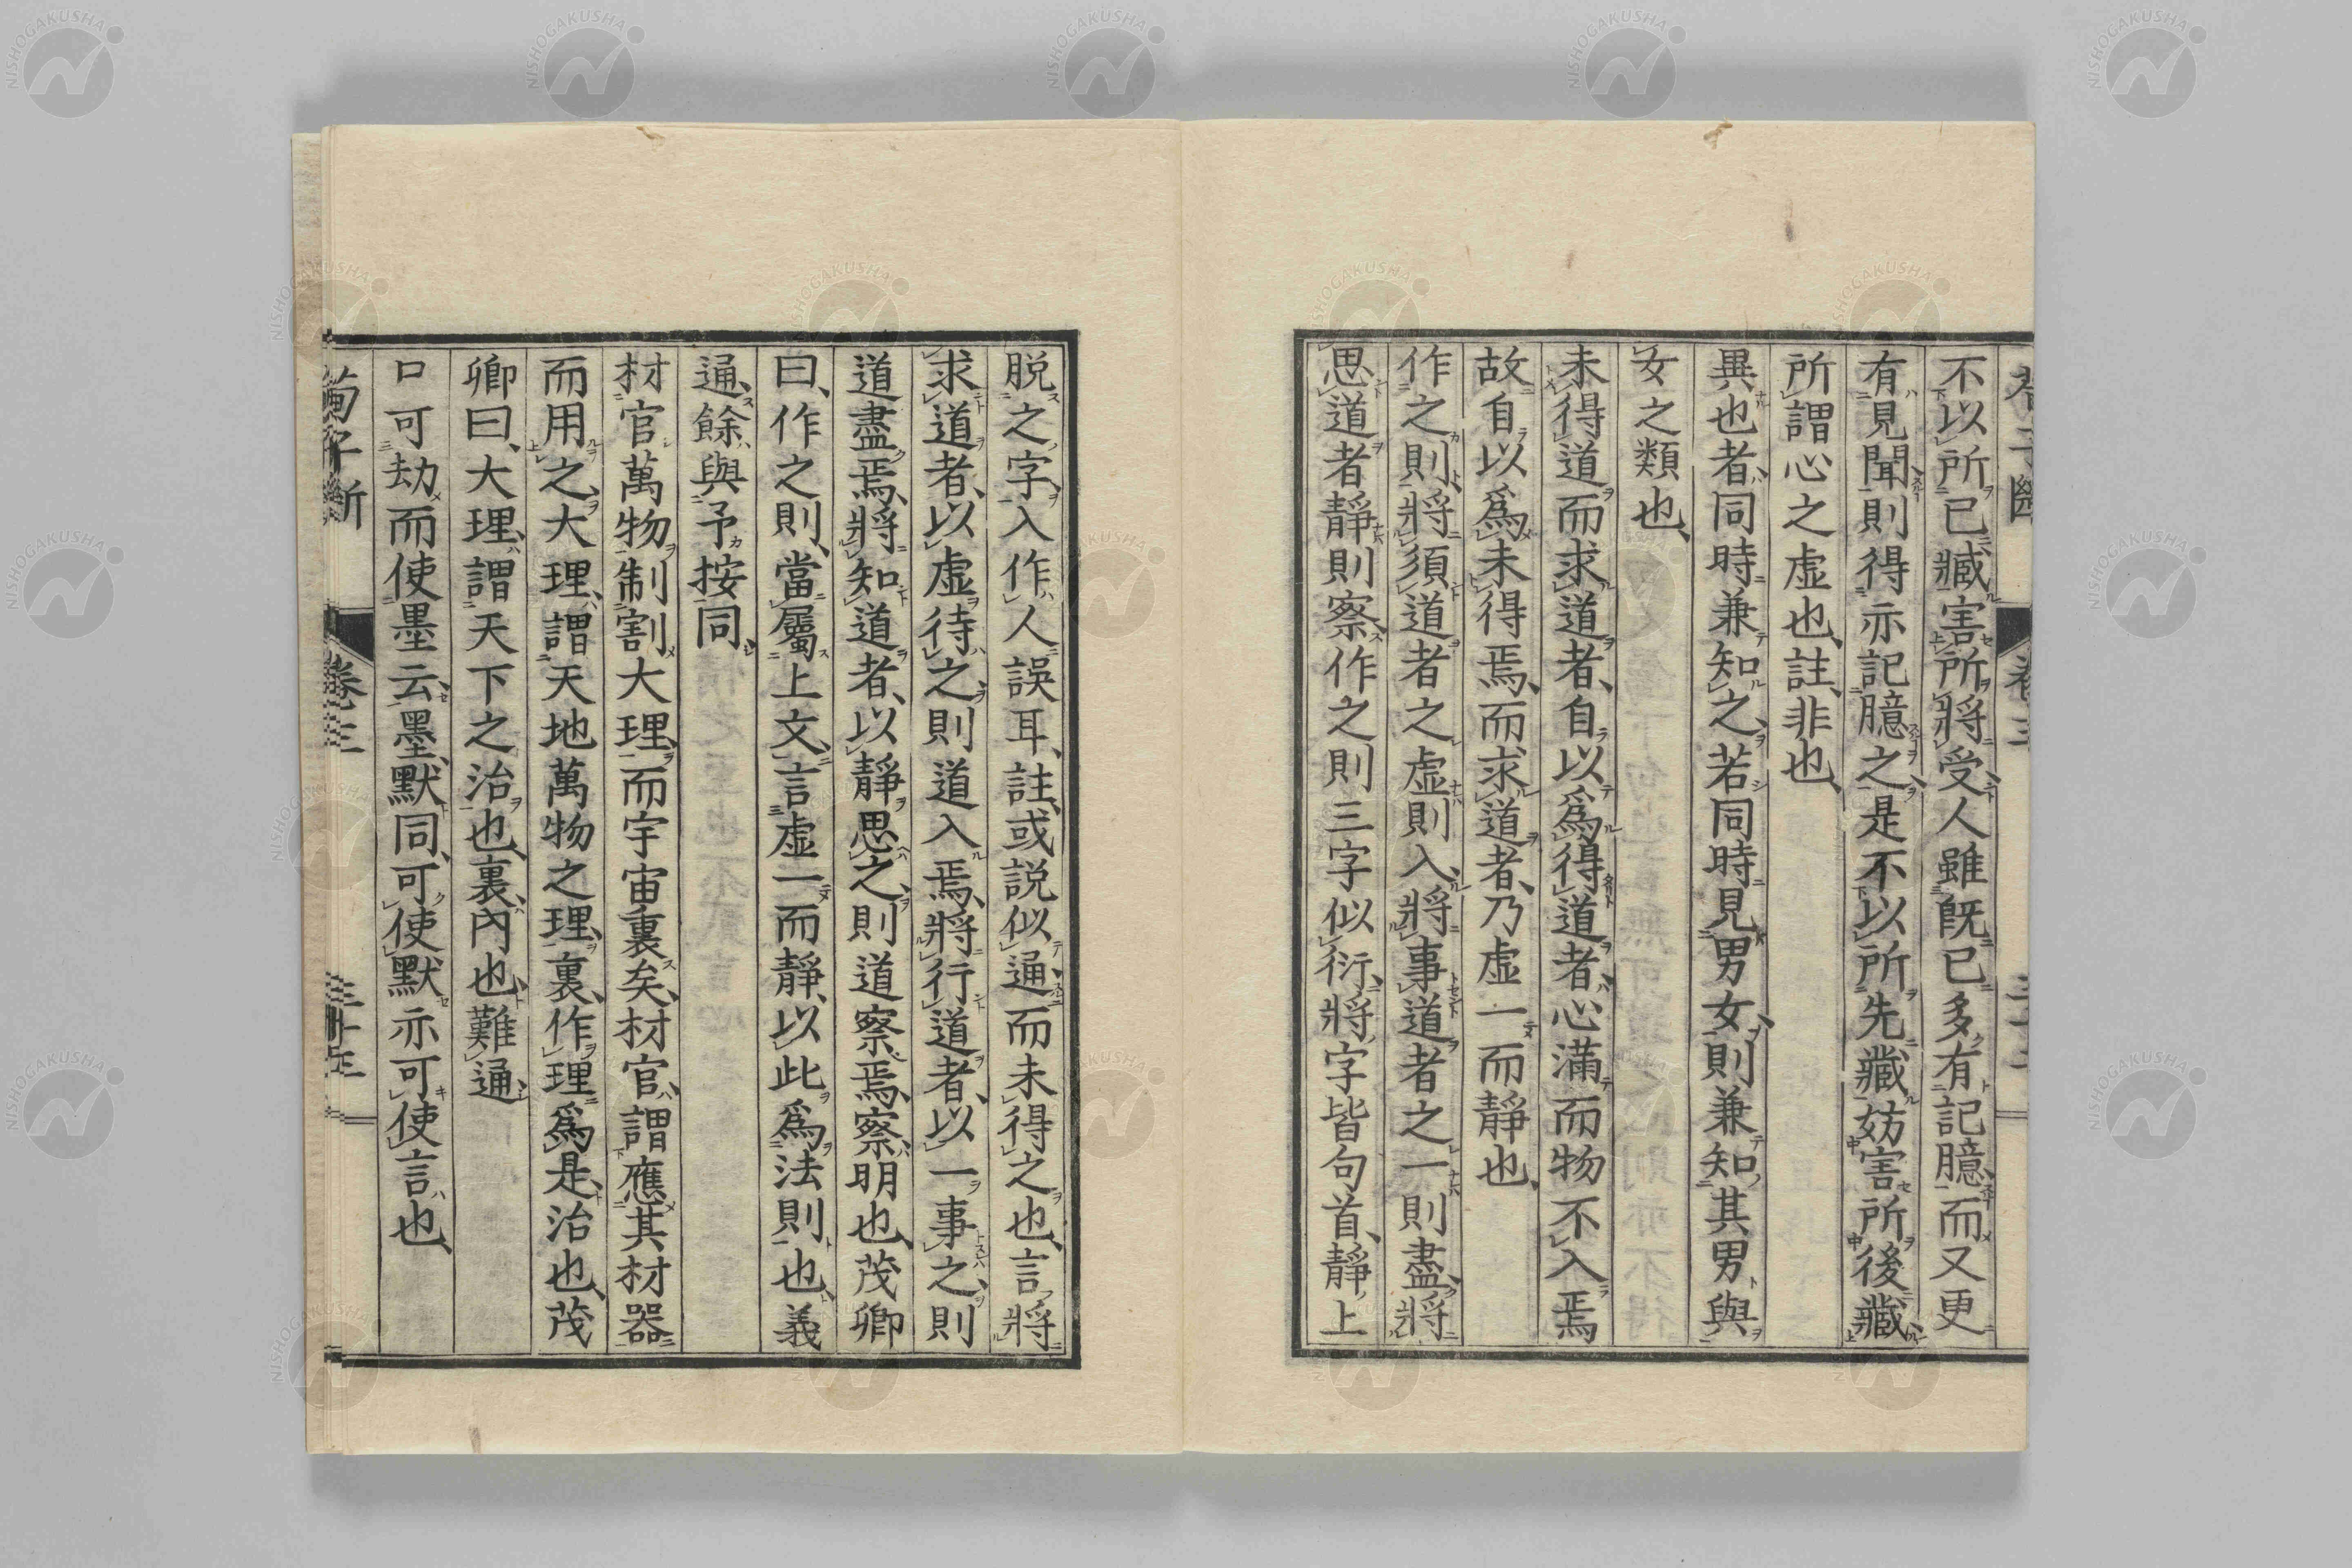 不以所已臧害所將受人雖旣已多有記臆而又更
有見聞則得亦記臆之是不以所先藏妨害所後藏
所謂心之虛也註非也
異也者同時兼知之若同時見男女則兼知其男與
女之類也
未得道而求道者自以爲得道者心滿而物不入焉
故自以爲未得焉而求道者乃虛一而靜也
作之則將須道者之虛則入將事道者之一則盡將
思道者靜則察作之則三字似衍將字皆句首靜上
脱之字入作人誤耳註或説似通而未得之也言將
求道者以虛待之則道入焉將行道者以一事之則
道盡焉將知道者以靜思之則道察焉察明也茂卿
曰作之則當屬上文言虛一而靜以此爲法則也義
通餘與予按同
材官萬物制割大理而宇宙裏矣材官謂應其材器
而用之大理謂天地萬物之理裏作理爲是治也茂
卿曰大理謂天下之治也裏內也難通
口可劫而使墨云墨默同可使默亦可使言也
荀子斷 卷三 三十五
NISHOGAKUSHA